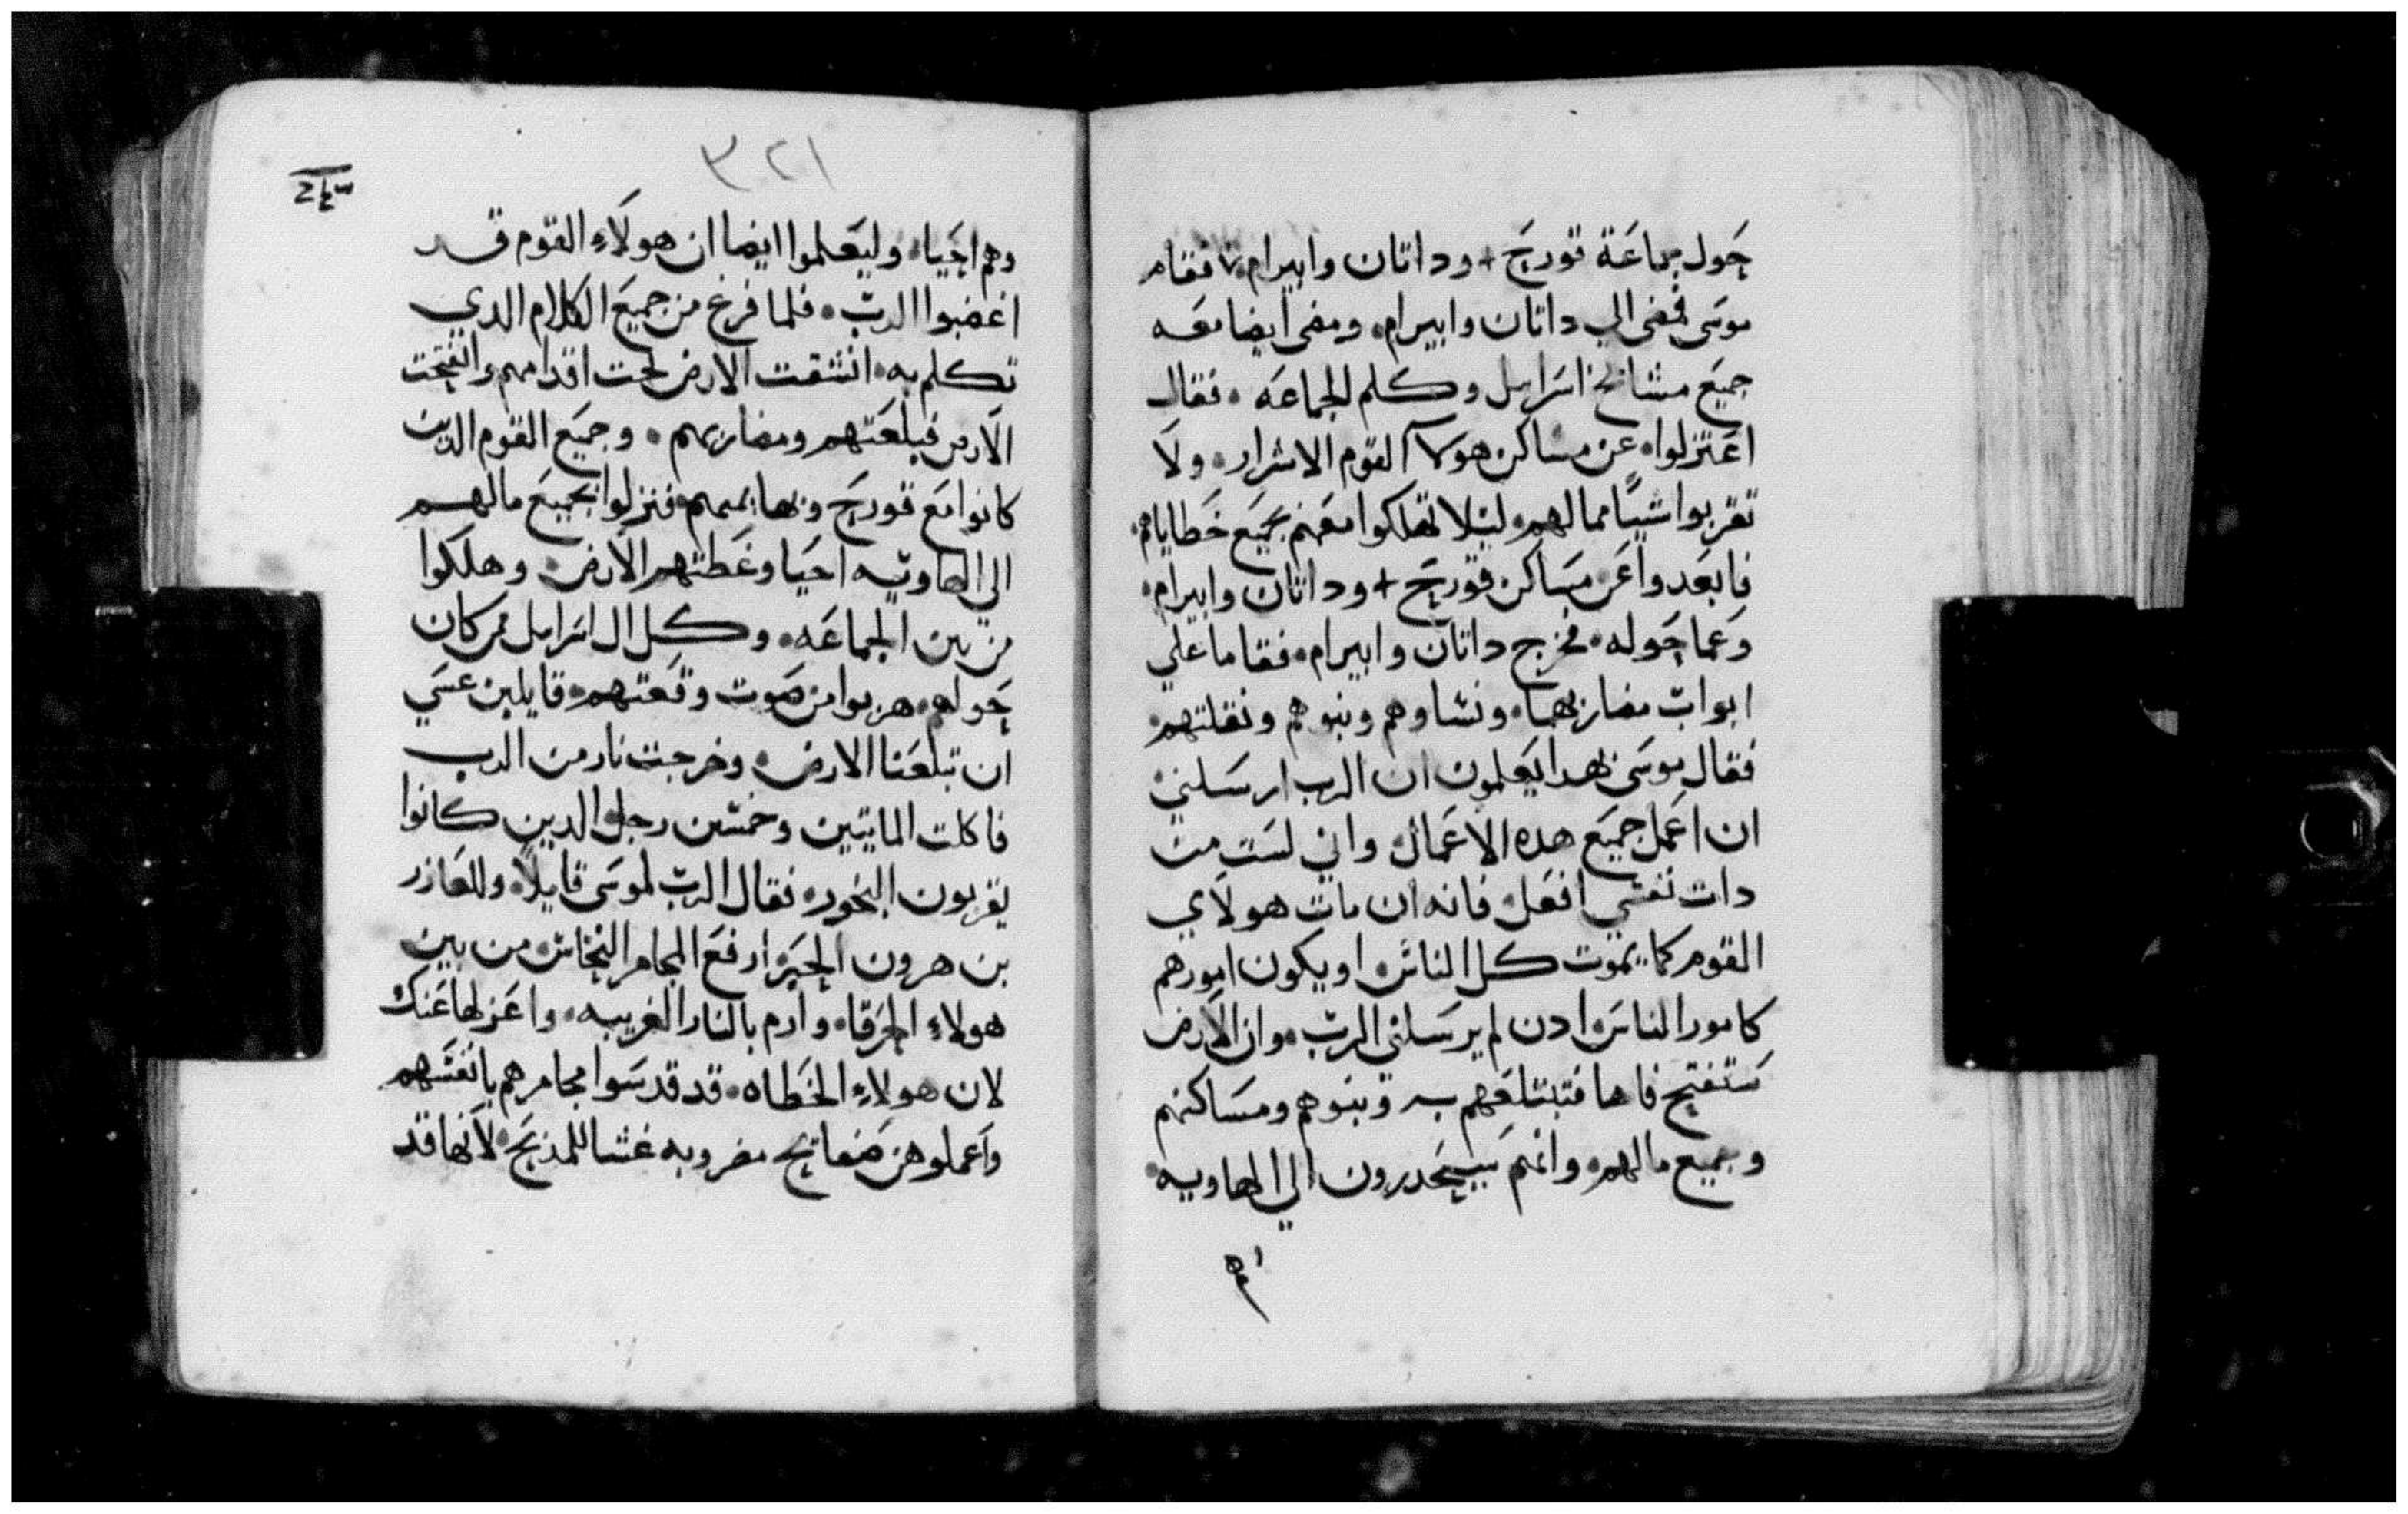 حول جماعة قورح + وداتان وابيرام فقام
موسى فمضى الي داتان وابيرام. ومضى ايضا معه
جميع مشائخ اسرايل وكلم الجماعه. فقال
اعتزلوا. عن مساكن هولآ القوم الاشرار. ولا
تقربوا شيًا مما لهم. ليلا تهلكوا معهم بجميع خطاياهم.
فابعدوا عن مساكن قورح + وداتان وابيرام.
وعما حوله. فخرج داتان وابيرام. فقاما علي
ابواب مضاربهما. ونساوهم وبنوهم ونقلتهم.
فقال موسى بهدا يعلمون ان الرب ارسلني.
ان اعمل جميع هده الاعمال. واني لست من
دات نفسي افعل. فانه ان مات هولاي
القوم كما يموت كل الناس. او يكون امورهم
كامور الناس. ادن لم يرسلني الرب. وان الارض
ستفتح فاها فتبتلعهم وبنوهم ومساكنهم
وجميع مالهم. وانهم سينحدرون الي الهاويه.
وهم
٣٢١
وهم احيا. وليعلموا ايضا ان هولاء القوم قد
اغضبوا الرب. فلما فرغ من جميع الكلام الدي
تكلم به. انشقت الارض تحت اقدامهم وانفتحت
الارض فبلعتهم ومضاربهم. وجميع القوم الدين
كانوا مع قورح وبهايمهم. فنزلوا بجميع مالهم
الي الهاويه احيا وغطتهم الارض. وهلكوا
من بين الجماعه. وكل ال اسرايل ممن كان
حولهم. هربوا من صوت وقعتهم. قايلين عسي
ان تبلعنا الارض. وخرجت نار من الرب
فاكلت المايتين وخمسين رجل. الدين كانوا
يقربون البخور. فقال الرب لموسى قايلاً. وللعازر
بن هرون الحبر. ارفع المجامر النحاس. من بين
هولاء الحرقا. وارم بالنار الغريبه. واعزلها عنك
لان هولاء الخطاه. قد قدسوا مجامرهم بانفسهم
واعملوهن صفايح مضروبه غشا للمذبح. لانها قد